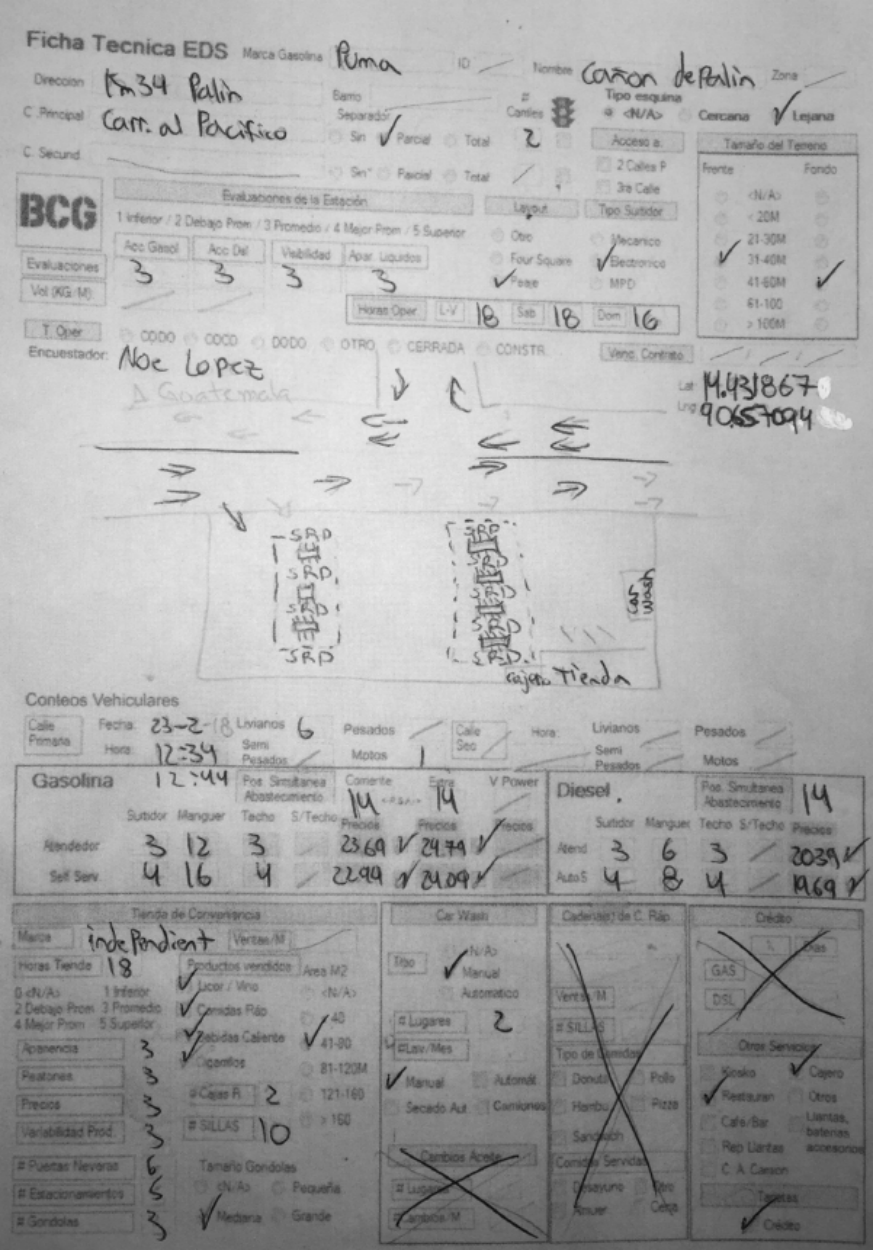 Ficha Tecnica EDS Marca Gasolina Puma ID Nombre Cañon de Palin Zona
Direccion Km34 Palin Barrio # Carriles Tipo esquina
C. Principal Carr. al Pacifico Separador Sin Parcial Total 2 <N/A> Cercana Lejana
C. Secund. Sin Parcial Total
Acceso a:
2 Calles P
3ra Calle
Tamaño del Terreno
Frente Fondo
<N/A>
< 20M
21-30M
31-40M
41-60M
61-100
> 100M
BCG
Evaluaciones de la Estación
1 Inferior / 2 Debajo Prom / 3 Promedio / 4 Mejor Prom / 5 Superior
Acc Gasol Acc Dsl Visibilidad Apar. Liquidos
Evaluaciones 3 3 3 3
Vol (KG/M)
Layout
Otro
Four Square
Peine
Tipo Surtidor
Mecanico
Electronico
MPD
Horas Oper L-V 18 Sab 18 Dom 16
T. Oper CODO COCO DODO OTRO CERRADA CONSTR. Venc. Contrato
Encuestador: Noe Lopez
Lat 14.431867
Lng 90.657094
Δ Guatemala
SRD SRD
SRD SRD
SRD SRD
SRD SRD
Car Wash
cajero Tienda
Conteos Vehiculares
Calle Primaria Fecha: 23-2-18 Livianos 6 Pesados Calle Sec Hora: Livianos Pesados
Hora: 12:34 Semi Pesados Motos 1 Semi Pesados Motos
12:44
Gasolina Pos. Simultanea Abastecimiento Corriente 14 Extra 14 V Power
Surtidor Manguer Techo S/Techo Precios Precios Precios
Atendedor 3 12 3 23.69 24.79
Self Serv. 4 16 4 22.99 24.09
Diesel Pos. Simultanea Abastecimiento 14
Surtidor Manguer Techo S/Techo Precios
Atend 3 6 3 20.39
Auto S 4 8 4 19.69
Tienda de Conveniencia
Marca independient Ventas/M
Horas Tienda 18 Productos vendidos Area M2
0 <N/A> 1 Inferior
2 Debajo Prom 3 Promedio
4 Mejor Prom 5 Superior
Licor / Vino
Comidas Ráp
Bebidas Caliente
Cigarrillos
<N/A>
< 40
41-80
81-120M
121-160
> 160
Apariencia 3
Peatones 3
Precios 3
Variabilidad Prod. 3
# Cajas R. 2
# SILLAS 10
# Puertas Neveras 6
# Estacionamientos 5
# Gondolas 3
Tamaño Gondolas
<N/A> Pequeña
Mediana Grande
Car Wash
Tipo <N/A>
Manual
Automatico
# Lugares 2
# Lav/Mes
Manual Automát
Secado Aut Camiones
Cambios Aceite
# Lugares
# Cambios/M
Cadena(s) de C. Ráp.
Ventas/M
# SILLAS
Tipo de Comidas
Donuts Pollo
Hambu Pizza
Sandwich
Comidas Servidas
Desayuno Otro
Almuer Cena
Crédito
% Dias
GAS
DSL
Otros Servicios
Kiosko Cajero
Restauran Otros
Cafe/Bar Llantas, baterias accesorios
Rep Llantas
C. A. Camion
Tarjetas
Crédito